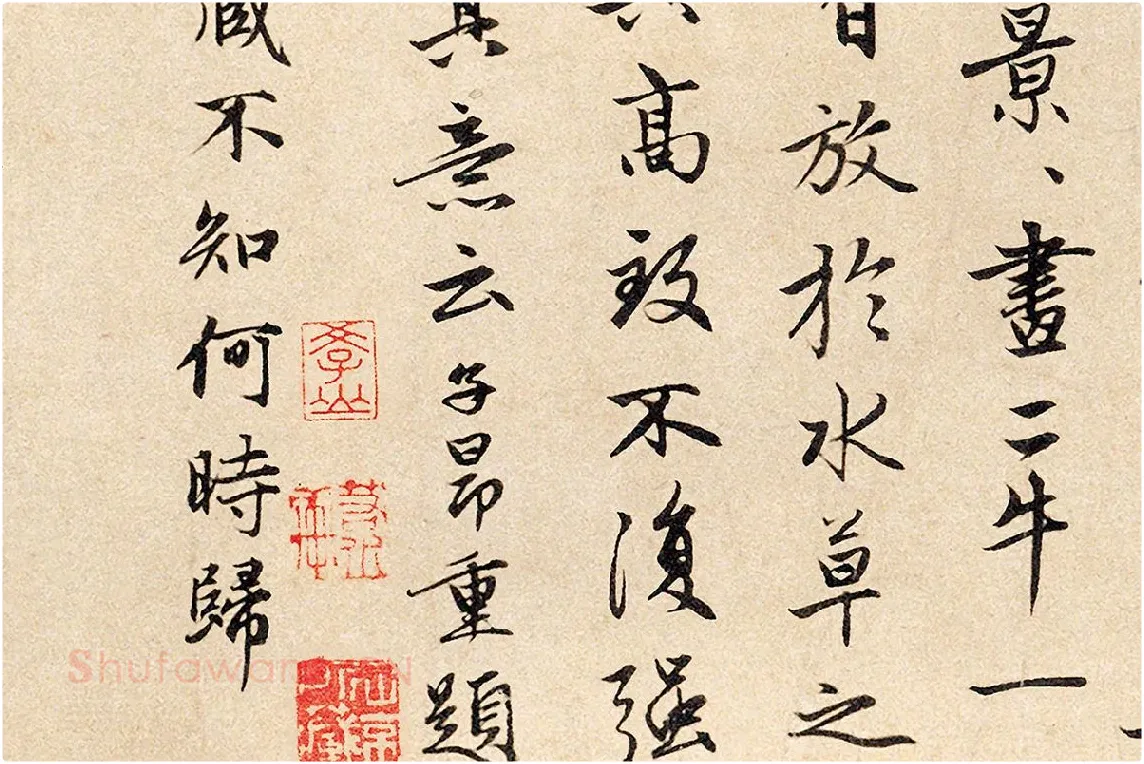 景、畫二牛一
自放於水草之
其高致不復强
其意云子昂重題
藏不知何時歸